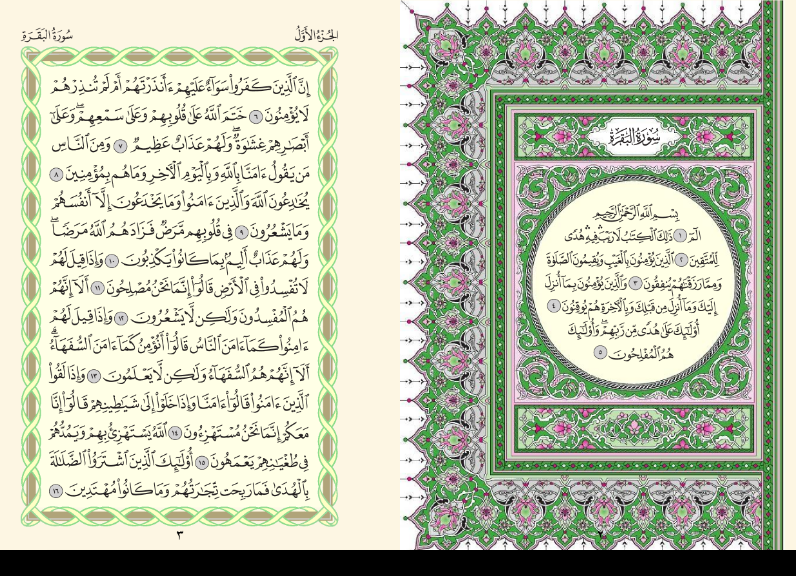 سُورَةُ البَقَرَةِ
بِسْمِ اللَّهِ الرَّحْمَٰنِ الرَّحِيمِ
الٓمٓ ١ ذَٰلِكَ ٱلْكِتَٰبُ لَا رَيْبَ فِيهِ هُدًى
لِّلْمُتَّقِينَ ٢ ٱلَّذِينَ يُؤْمِنُونَ بِٱلْغَيْبِ وَيُقِيمُونَ ٱلصَّلَوٰةَ
وَمِمَّا رَزَقْنَٰهُمْ يُنفِقُونَ ٣ وَٱلَّذِينَ يُؤْمِنُونَ بِمَآ أُنزِلَ
إِلَيْكَ وَمَآ أُنزِلَ مِن قَبْلِكَ وَبِٱلْءَاخِرَةِ هُمْ يُوقِنُونَ ٤
أُو۟لَٰٓئِكَ عَلَىٰ هُدًى مِّن رَّبِّهِمْ وَأُو۟لَٰٓئِكَ
هُمُ ٱلْمُفْلِحُونَ ٥
٢
الجُزْءُ الأَوَّلُ
سُورَةُ البَقَرَةِ
إِنَّ ٱلَّذِينَ كَفَرُوا۟ سَوَآءٌ عَلَيْهِمْ ءَأَنذَرْتَهُمْ أَمْ لَمْ تُنذِرْهُمْ
لَا يُؤْمِنُونَ ٦ خَتَمَ ٱللَّهُ عَلَىٰ قُلُوبِهِمْ وَعَلَىٰ سَمْعِهِمْ ۖ وَعَلَىٰٓ
أَبْصَٰرِهِمْ غِشَٰوَةٌ ۖ وَلَهُمْ عَذَابٌ عَظِيمٌ ٧ وَمِنَ ٱلنَّاسِ
مَن يَقُولُ ءَامَنَّا بِٱللَّهِ وَبِٱلْيَوْمِ ٱلْءَاخِرِ وَمَا هُم بِمُؤْمِنِينَ ٨
يُخَٰدِعُونَ ٱللَّهَ وَٱلَّذِينَ ءَامَنُوا۟ وَمَا يَخْدَعُونَ إِلَّآ أَنفُسَهُمْ
وَمَا يَشْعُرُونَ ٩ فِى قُلُوبِهِم مَّرَضٌ فَزَادَهُمُ ٱللَّهُ مَرَضًا ۖ
وَلَهُمْ عَذَابٌ أَلِيمٌۢ بِمَا كَانُوا۟ يَكْذِبُونَ ١٠ وَإِذَا قِيلَ لَهُمْ
لَا تُفْسِدُوا۟ فِى ٱلْأَرْضِ قَالُوٓا۟ إِنَّمَا نَحْنُ مُصْلِحُونَ ١١ أَلَآ إِنَّهُمْ
هُمُ ٱلْمُفْسِدُونَ وَلَٰكِن لَّا يَشْعُرُونَ ١٢ وَإِذَا قِيلَ لَهُمْ
ءَامِنُوا۟ كَمَآ ءَامَنَ ٱلنَّاسُ قَالُوٓا۟ أَنُؤْمِنُ كَمَآ ءَامَنَ ٱلسُّفَهَآءُ ۗ
أَلَآ إِنَّهُمْ هُمُ ٱلسُّفَهَآءُ وَلَٰكِن لَّا يَعْلَمُونَ ١٣ وَإِذَا لَقُوا۟
ٱلَّذِينَ ءَامَنُوا۟ قَالُوٓا۟ ءَامَنَّا وَإِذَا خَلَوْا۟ إِلَىٰ شَيَٰطِينِهِمْ قَالُوٓا۟ إِنَّا
مَعَكُمْ إِنَّمَا نَحْنُ مُسْتَهْزِءُونَ ١٤ ٱللَّهُ يَسْتَهْزِئُ بِهِمْ وَيَمُدُّهُمْ
فِى طُغْيَٰنِهِمْ يَعْمَهُونَ ١٥ أُو۟لَٰٓئِكَ ٱلَّذِينَ ٱشْتَرَوُا۟ ٱلضَّلَٰلَةَ
بِٱلْهُدَىٰ فَمَا رَبِحَت تِّجَٰرَتُهُمْ وَمَا كَانُوا۟ مُهْتَدِينَ ١٦
٣